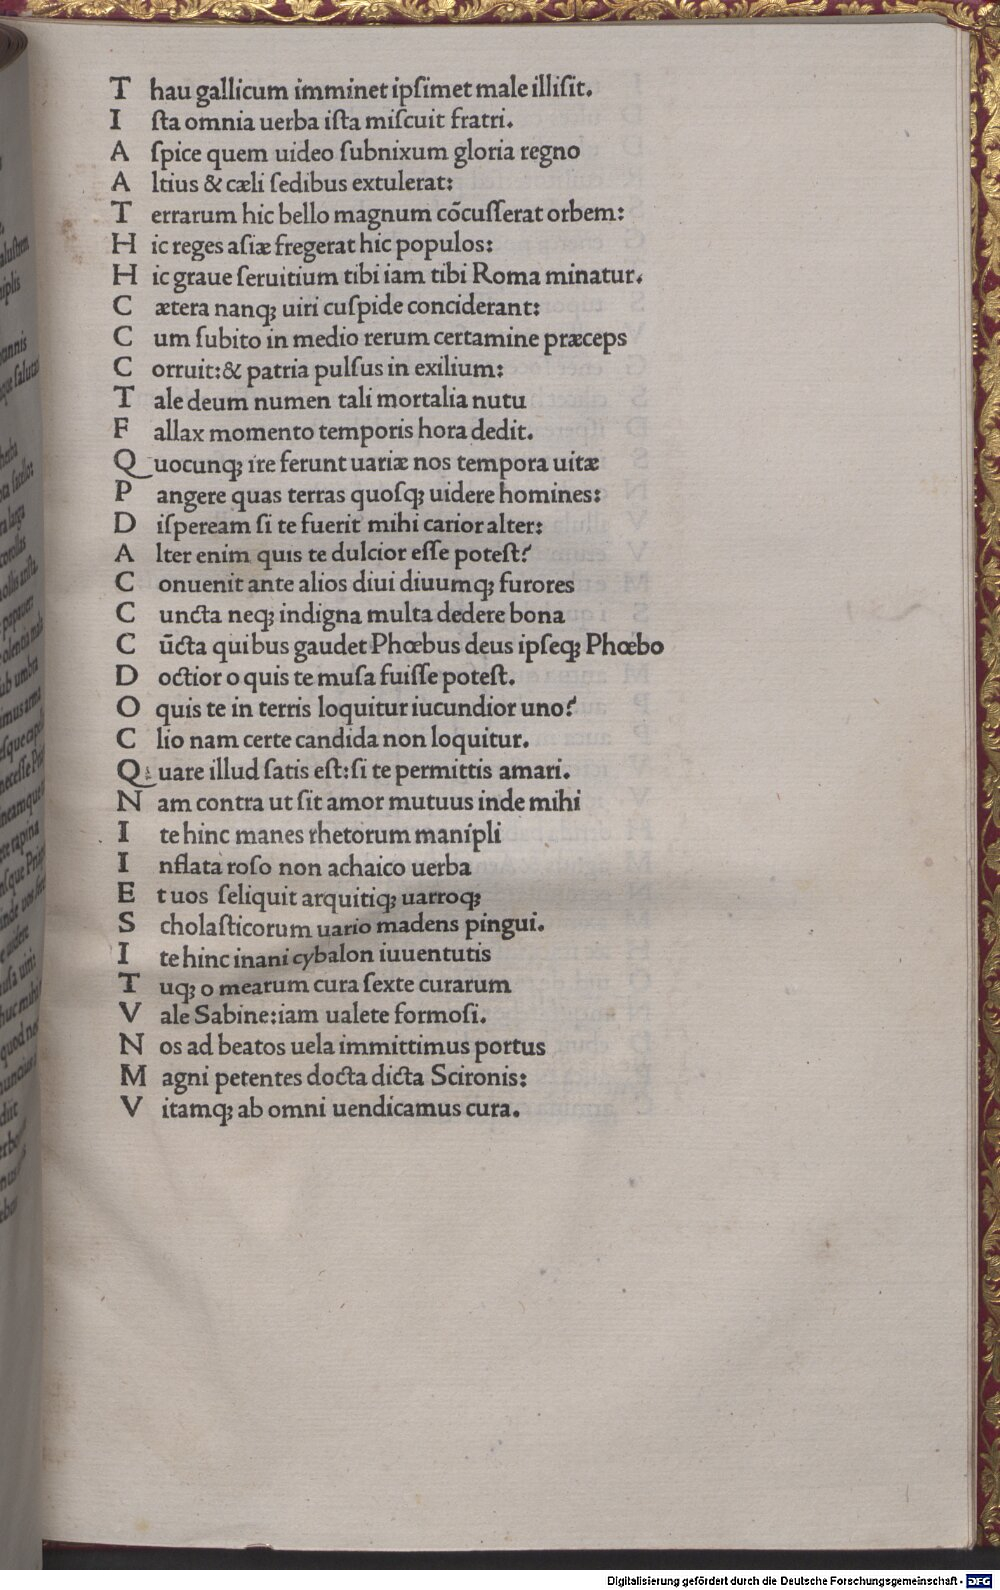 T hau gallicum imminet ipſimet male illiſit.
I ſta omnia uerba iſta miſcuit fratri.
A ſpice quem uideo ſubnixum gloria regno
A ltius & cæli ſedibus extulerat:
T errarum hic bello magnum cõcuſſerat orbem:
H ic reges aſiæ fregerat hic populos:
H ic graue ſeruitium tibi iam tibi Roma minatur.
C ætera nanq; uiri cuſpide conciderant:
C um ſubito in medio rerum certamine præceps
C orruit:& patria pulſus in exilium:
T ale deum numen tali mortalia nutu
F allax momento temporis hora dedit.
Q uocunq; ire ferunt uariæ nos tempora uitæ
P angere quas terras quoſq; uidere homines:
D iſpeream ſi te fuerit mihi carior alter:
A lter enim quis te dulcior eſſe poteſt?
C onuenit ante alios diui diuumq; furores
C uncta neq; indigna multa dedere bona
C ũcta quibus gaudet Phœbus deus ipſeq; Phœbo
D octior o quis te muſa fuiſſe poteſt.
O quis te in terris loquitur iucundior uno?
C lio nam certe candida non loquitur.
Q uare illud ſatis eſt:ſi te permittis amari.
N am contra ut ſit amor mutuus inde mihi
I te hinc manes rhetorum manipli
I nflata roſo non achaico uerba
E t uos ſeliquit arquitiq; uarroq;
S cholaſticorum uario madens pingui.
I te hinc inani cybalon iuuentutis
T uq; o mearum cura ſexte curarum
V ale Sabine:iam ualete formoſi.
N os ad beatos uela immittimus portus
M agni petentes docta dicta Scironis:
V itamq; ab omni uendicamus cura.
Digitalisierung gefördert durch die Deutsche Forschungsgemeinschaft - DFG